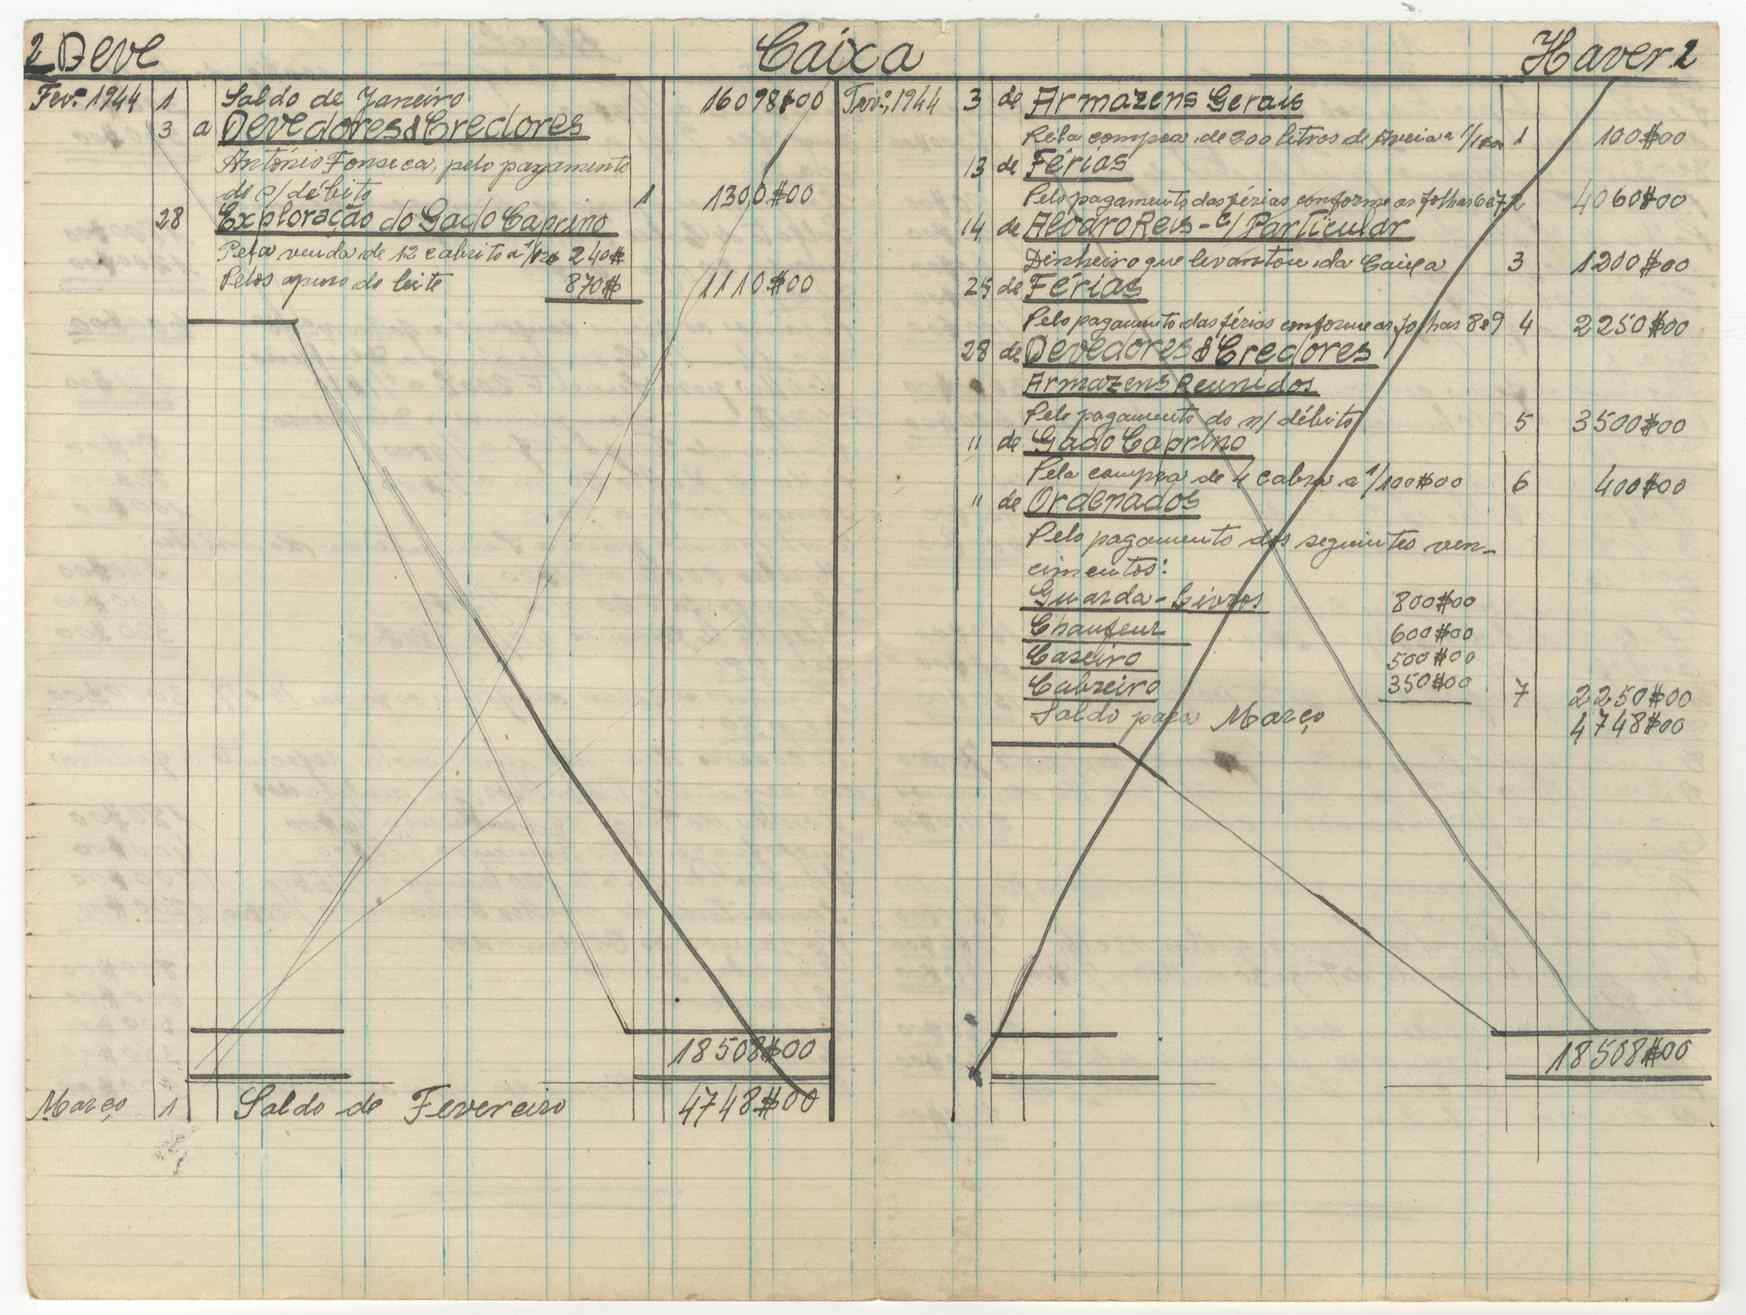 2 Deve
Caixa
Haver 2
Fev.º 1944 1 Saldo de Janeiro 16098$00
3 a Devedores & Credores
António Fonseca, pelo pagamento
do s/ débito 1 1300$00
28 Exploração do Gado Caprino
Pela venda de 12 cabrito a 240$
Pelos apuro do leite 870$ 1110$00
18508$00
Março 1 Saldo de Fevereiro 4748$00
Fev.º, 1944 3 de Armazens Gerais
Pela compra de 200 litros de Aveia a 1 100$00
13 de Férias
Pelo pagamento das férias conforme as folhas 6 e 7 2 4060$00
14 de Alvdro Reis - C/ Particular
Dinheiro que levantou da Caixa 3 1200$00
25 de Férias
Pelo pagamento das férias conforme as folhas 8 e 9 4 2250$00
28 de Devedores & Credores
Armazens Reunidos
Pelo pagamento do n/ débito 5 3500$00
" de Gado Caprino
Pela compra de 4 cabra a 1/100$00 6 400$00
" de Ordenados
Pelo pagamento dos seguintes ven-
cimentos:
Guarda-Livros 800$00
Chaufeur 600$00
Caseiro 500$00
Cabreiro 350$00 7 2250$00
Saldo para Março 4748$00
18508$00